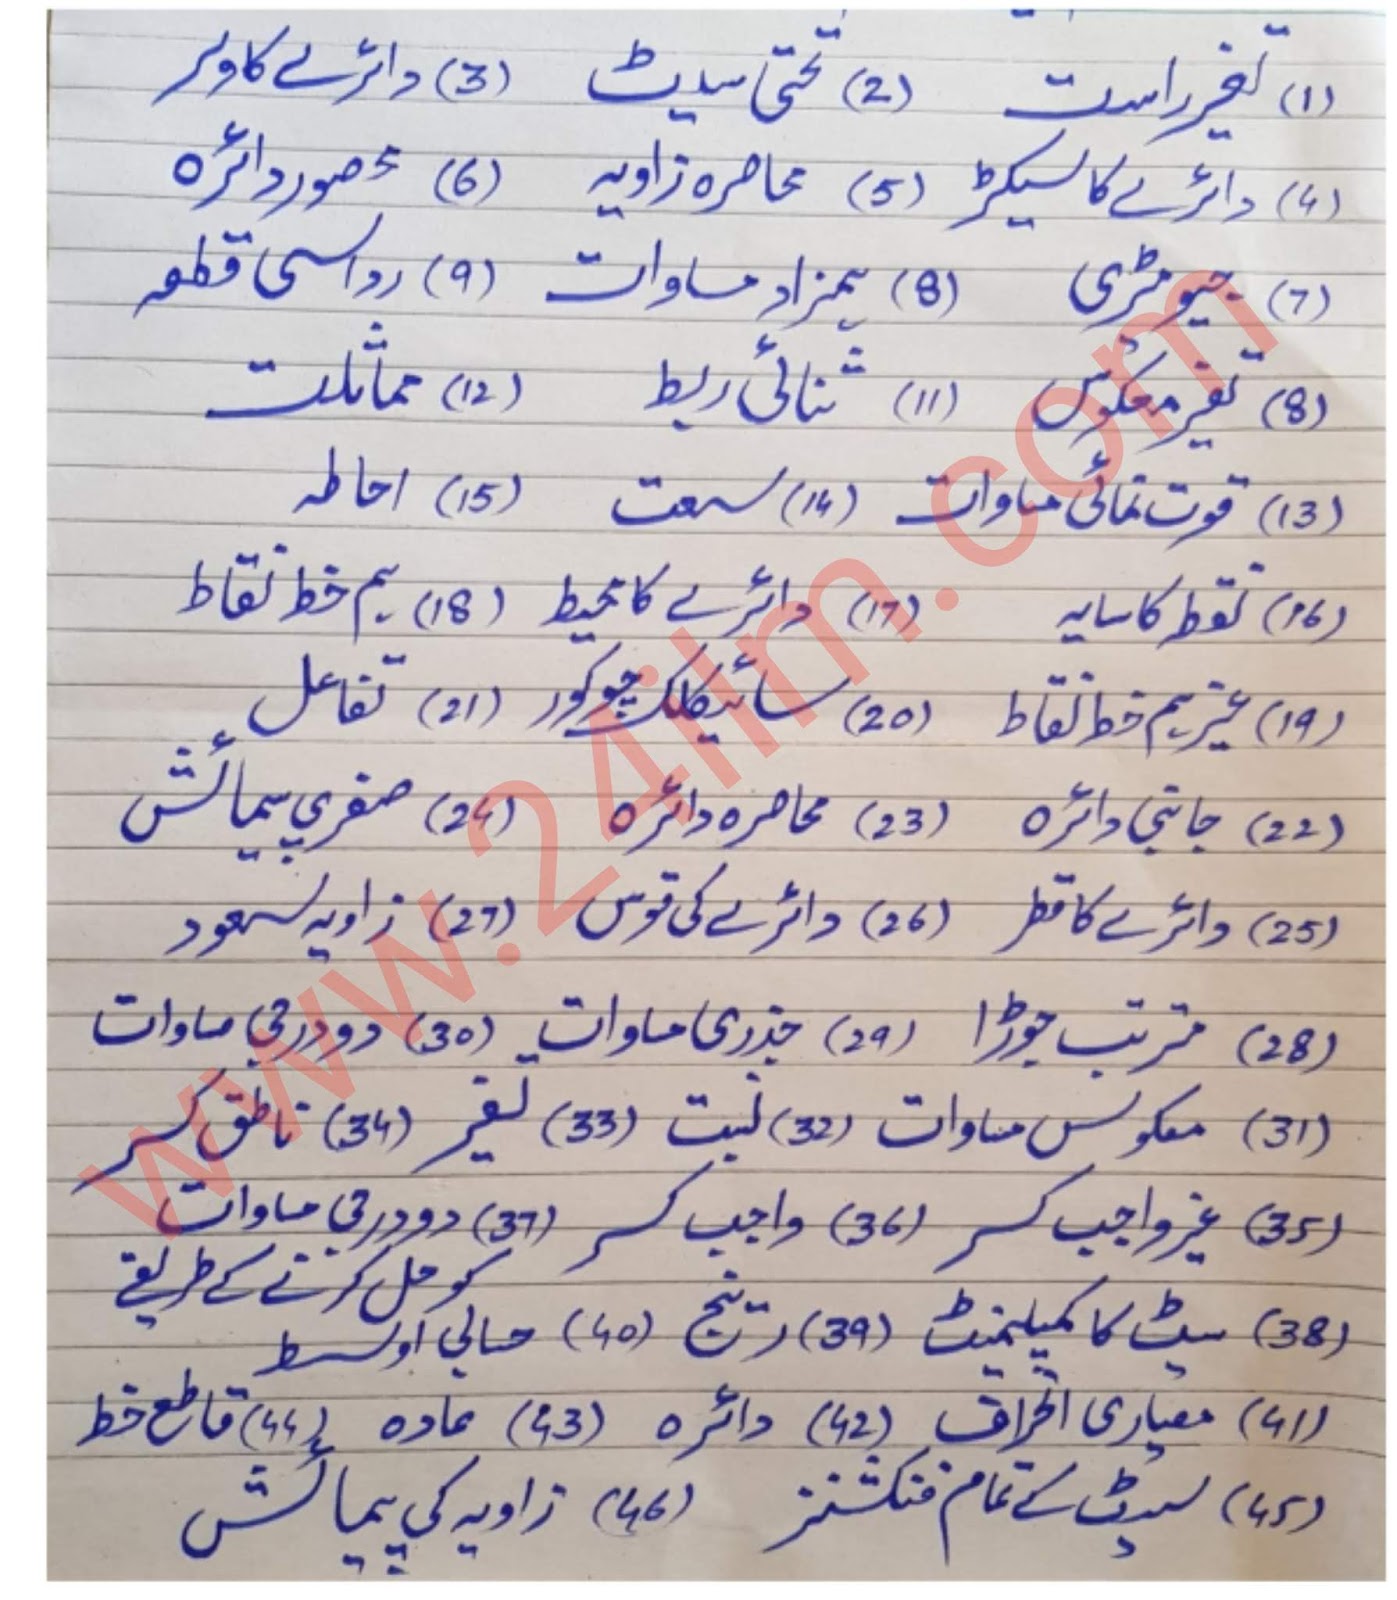 (1) تغیر راست (2) تحتی سیٹ (3) دائرے کا وتر
(4) دائرے کا سیکٹر (5) محاصرہ زاویہ (6) محصور دائرہ
(7) جیومٹری (8) ہمزاد مساوات (9) رداسی قطعہ
(8) تغیر معکوس (11) ثنائی ربط (12) مماثلت
(13) قوت نمائی مساوات (14) سمعت (15) احاطہ
(16) نقطہ کا سایہ (17) دائرے کا محیط (18) ہم خط نقاط
(19) غیر ہم خط نقاط (20) سائیکلک چوکور (21) تفاعل
(22) جانبی دائرہ (23) محاصرہ دائرہ (24) صغیری پیمائش
(25) دائرے کا قطر (26) دائرے کی قوس (27) زاویہ صعود
(28) مترتب جوڑا (29) جذری مساوات (30) دو درجی مساوات
(31) معکوس مساوات (32) نسبت (33) تغیر (34) ناطق کسر
(35) غیر واجب کسر (36) واجب کسر (37) دو درجی مساوات
کو حل کرنے کے طریقے
(38) سیٹ کا کمپلیمنٹ (39) رینج (40) حسابی اوسط
(41) معیاری انحراف (42) دائرہ (43) عادہ (44) قاطع خط
(45) سیٹ کے تمام فنکشنز (46) زاویہ کی پیمائش
www.24ilm.com